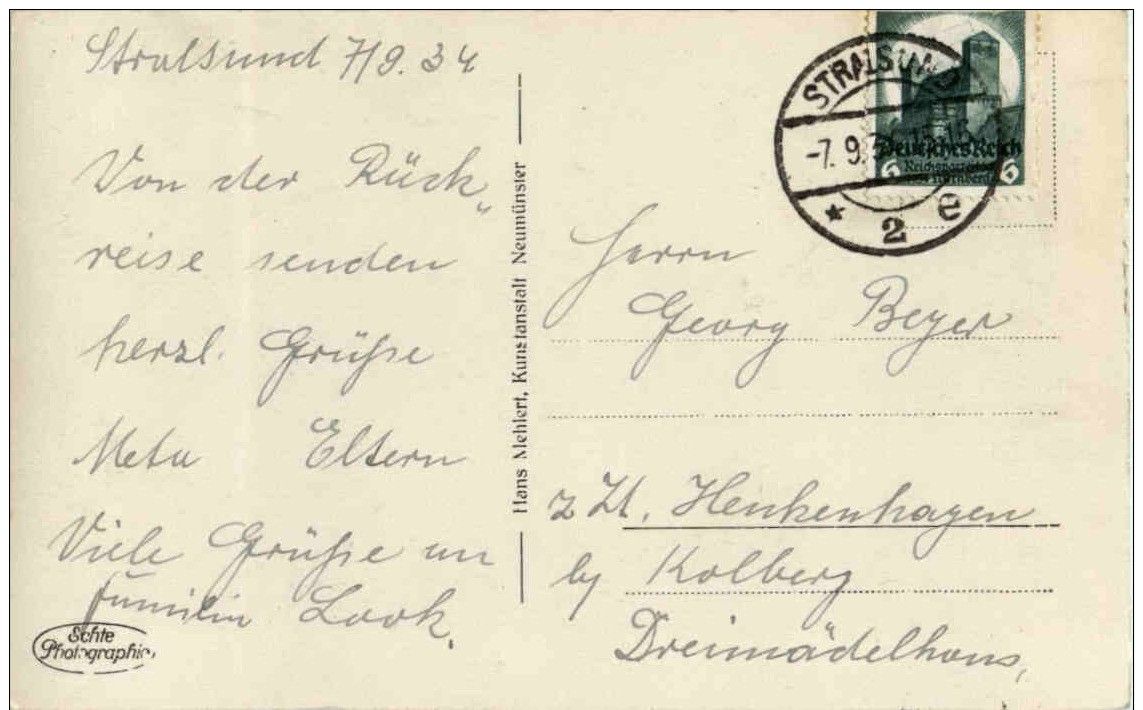 Stralsund 7/9. 34
Von der Rück„
reise senden
herzl. Grüße
Meta Eltern
Viele Grüße an
Familie Look.
Echte
Photographie
Hans Mehlert, Kunstanstalt Neumünster
STRALSUND
-7. 9. 34 15-16
* 2 e
Deutsches Reich
6 6
Herrn
Georg Beyer
z Zt. Henkenhagen
by Kolberg
Dreimädelhaus,